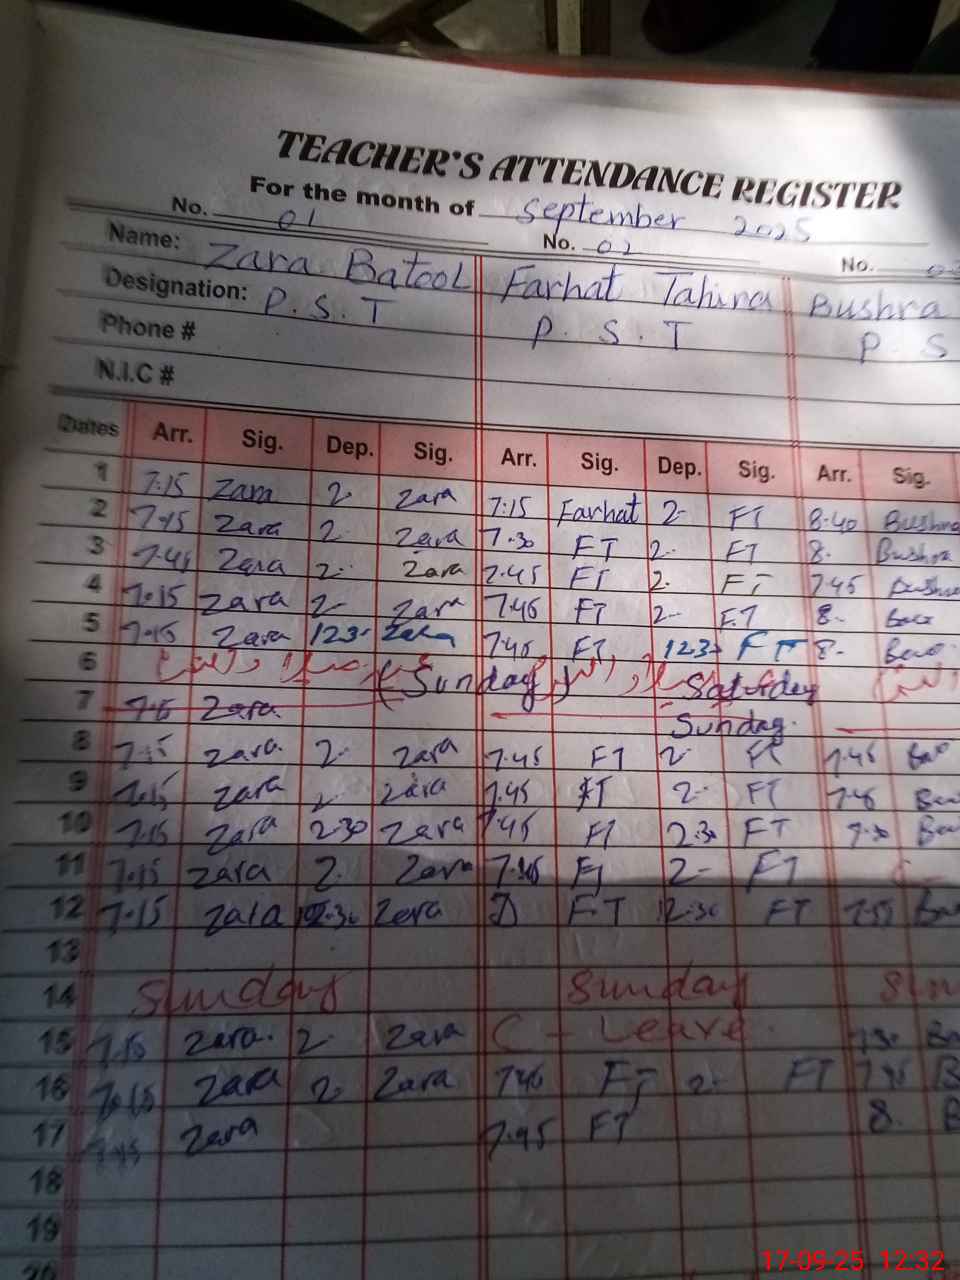 TEACHER'S ATTENDANCE REGISTER
For the month of September 2025
No. 01 No. 02 No.
Name: Zara Batool Farhat Tahira Bushra
Designation: P.S.T P.S.T P S
Phone #
N.I.C #
Dates Arr. Sig. Dep. Sig. Arr. Sig. Dep. Sig. Arr. Sig.
1 7:15 Zara 2- Zara 7:15 Farhat 2- FT 8-40 Bushra
2 7:15 Zara 2- Zara 7.30 FT 2- FT 8. Bushra
3 7.45 Zara 2- Zara 7.45 FT 2. FT 7.45
4 7.15 Zara 2- Zara 7.45 FT 2- F.T 8-
5 7.15 Zara 1230 Zara 7.45 FT 1230 FT 8-
6 (Sunday) Saturday
7 Zara Sunday.
8 7:15 Zara. 2- Zara 7.45 FT 2- FT 7.45
9 7.15 Zara 2- Zara 7.45 FT 2- FT 7.45
10 7.15 Zara 2-30 Zara 7.45 FT 2.30 FT 7.30
11 7.15 Zara 2. Zara FT 2- FT
12 7.15 Zara 12.30 Zara FT 12.30 FT 7.55
13
14 Sunday Sunday
15 7.15 Zara. 2- Zara C - Leave. 7.30
16 7.15 Zara 2- Zara 7.45 FT 2- FT 7.45
17 Zara 7.45 FT 8.
18
19
20
17-09-25 12:32